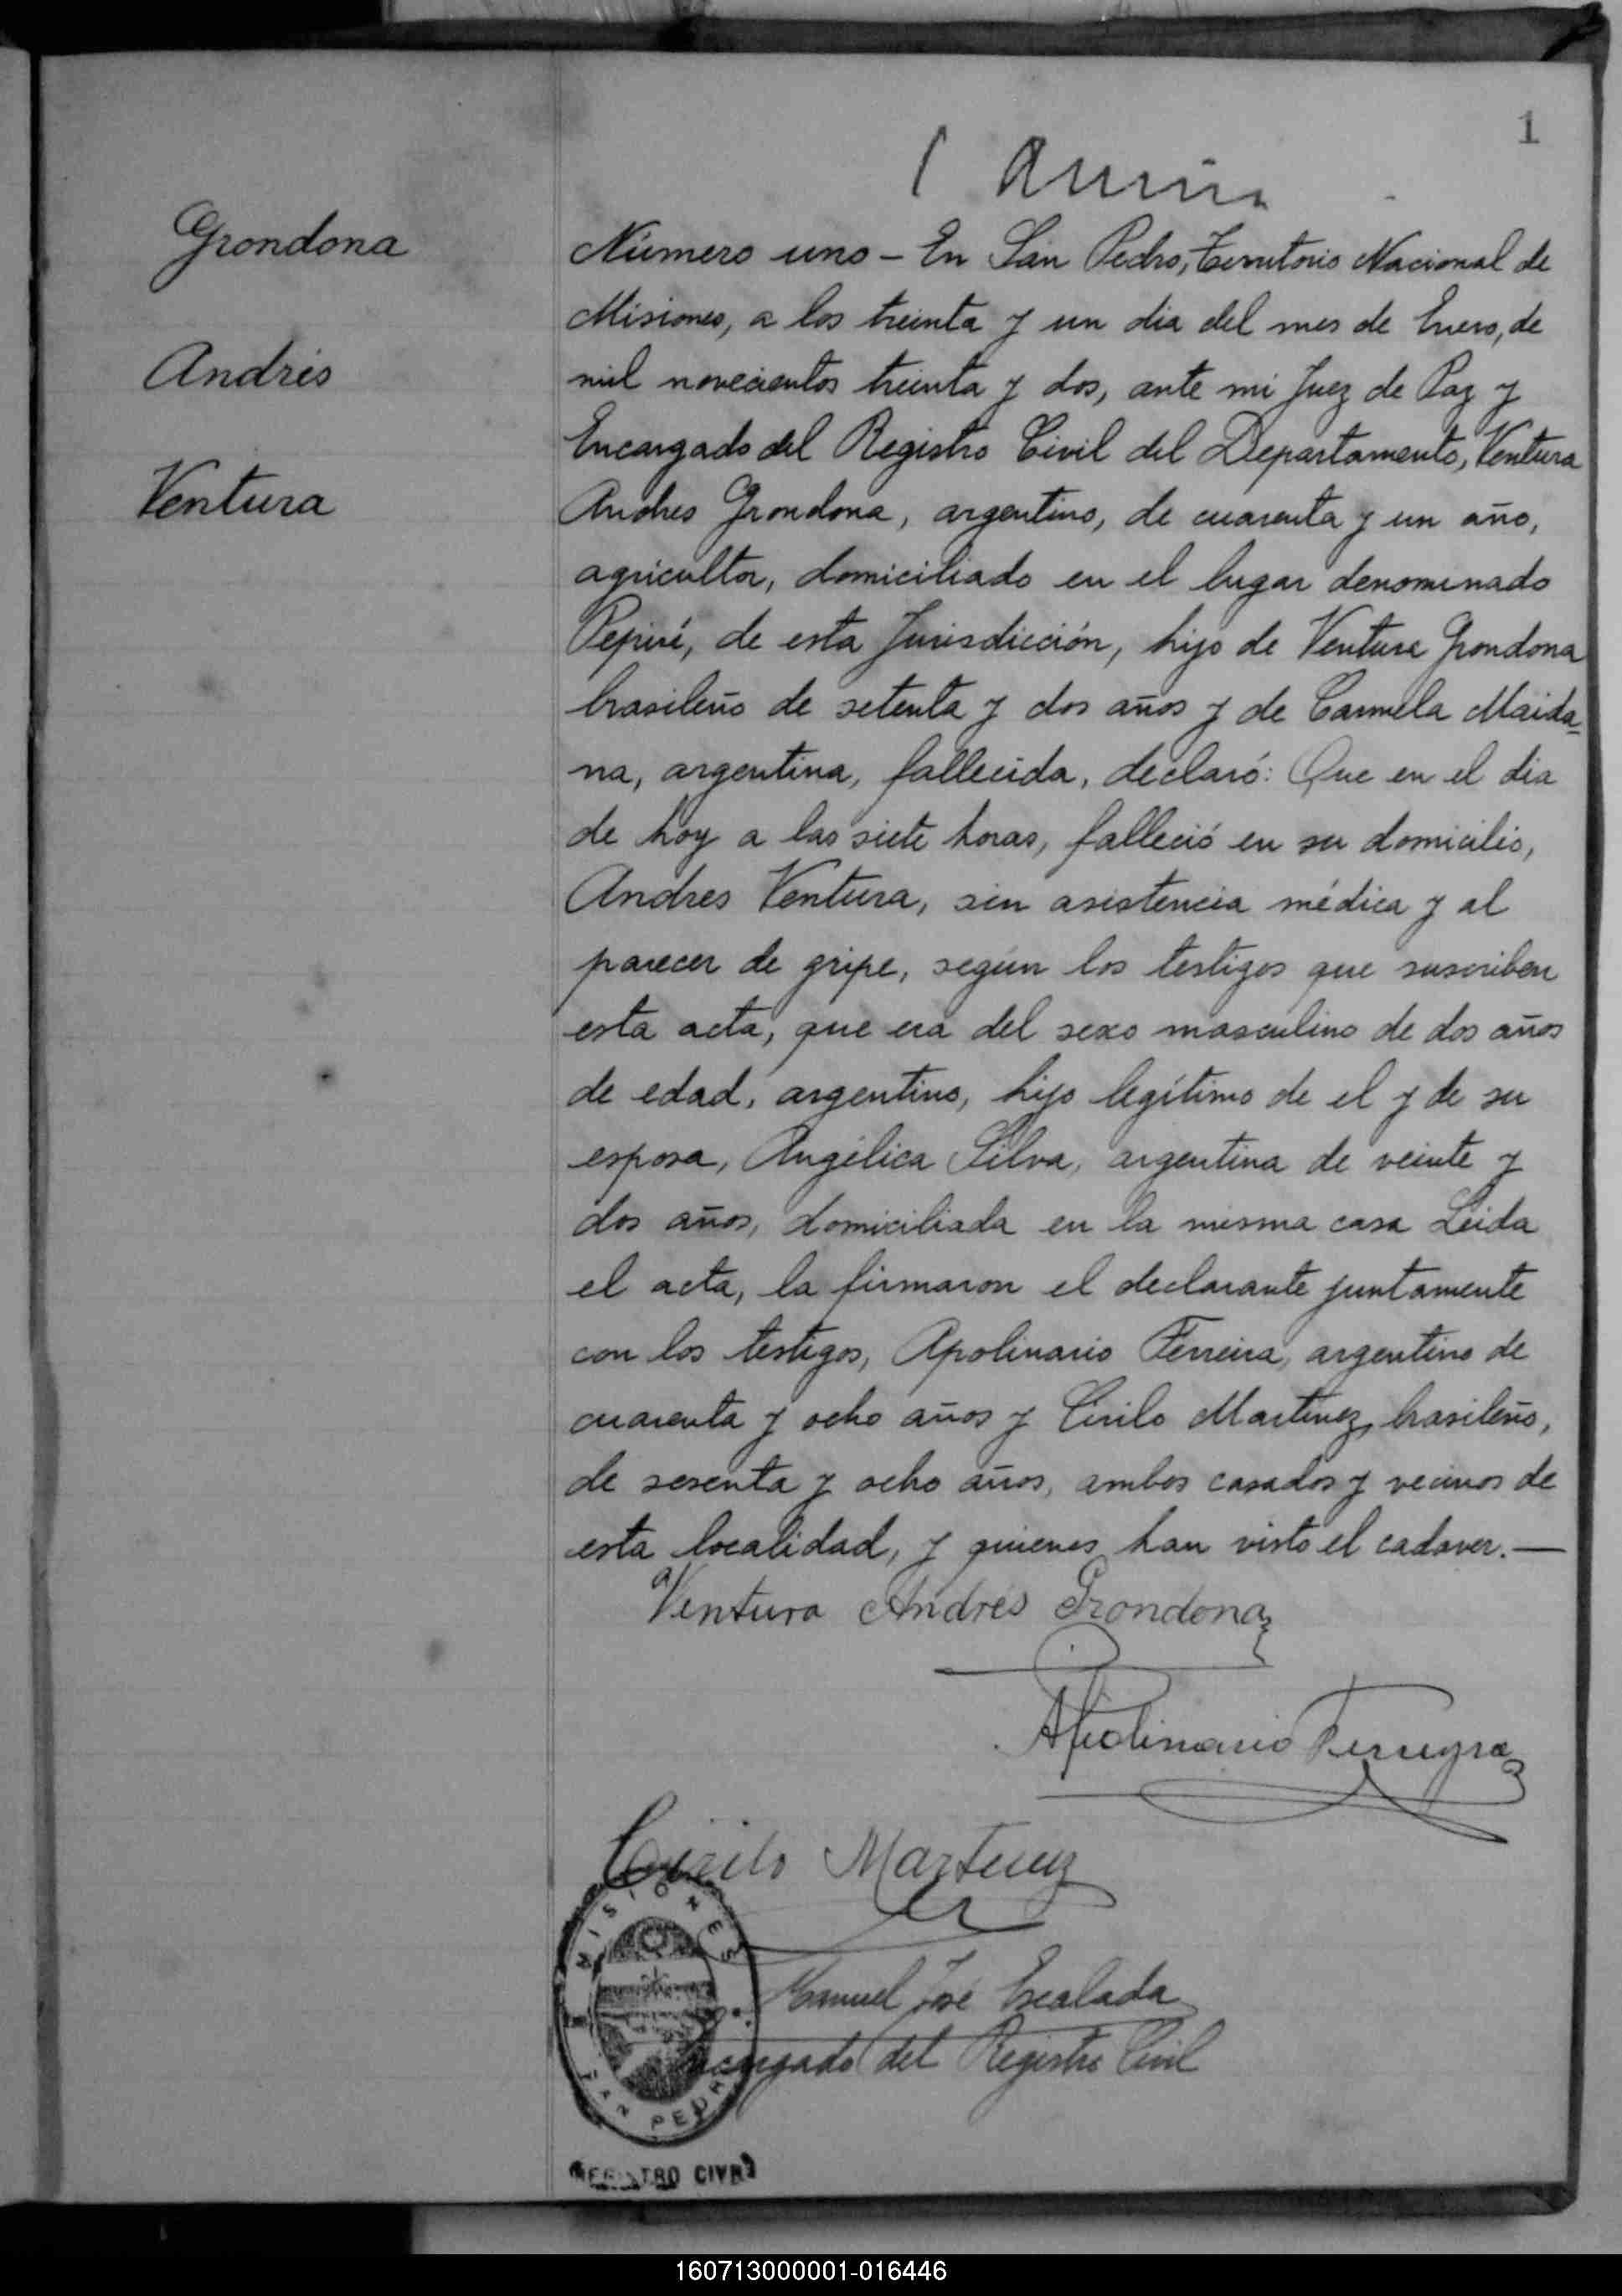 1
Grondona
Andrés
Ventura
Número uno - En San Pedro, Territorio Nacional de
Misiones, a los treinta y un dia del mes de Enero, de
mil novecientos treinta y dos, ante mi Juez de Paz y
Encargado del Registro Civil del Departamento, Ventura
Andres Grondona, argentino, de cuarenta y un año,
agricultor, domiciliado en el lugar denominado
Pepirí, de esta Jurisdicción, hijo de Ventura Grondona
brasileño de setenta y dos años y de Carmela Maida=
na, argentina, fallecida, declaró: Que en el dia
de hoy a las siete horas, falleció en su domicilio,
Andres Ventura, sin asistencia médica y al
parecer de gripe, según los testigos que suscriben
esta acta, que era del sexo masculino de dos años
de edad, argentino, hijo legítimo de el y de su
esposa, Angélica Silva, argentina de veinte y
dos años, domiciliada en la misma casa Leida
el acta, la firmaron el declarante juntamente
con los testigos, Apolinario Ferreira, argentino de
cuarenta y ocho años y Cirilo Martinez, brasileño,
de sesenta y ocho años, ambos casados y vecinos de
esta localidad, y quienes han visto el cadaver.—
Ventura Andrés Grondona
Apolinario Ferreyra
Cirilo Martinez
MISIONES
Manuel José Escalada
Encargado del Registro Civil
SAN PEDRO
REGISTRO CIVIL
160713000001-016446